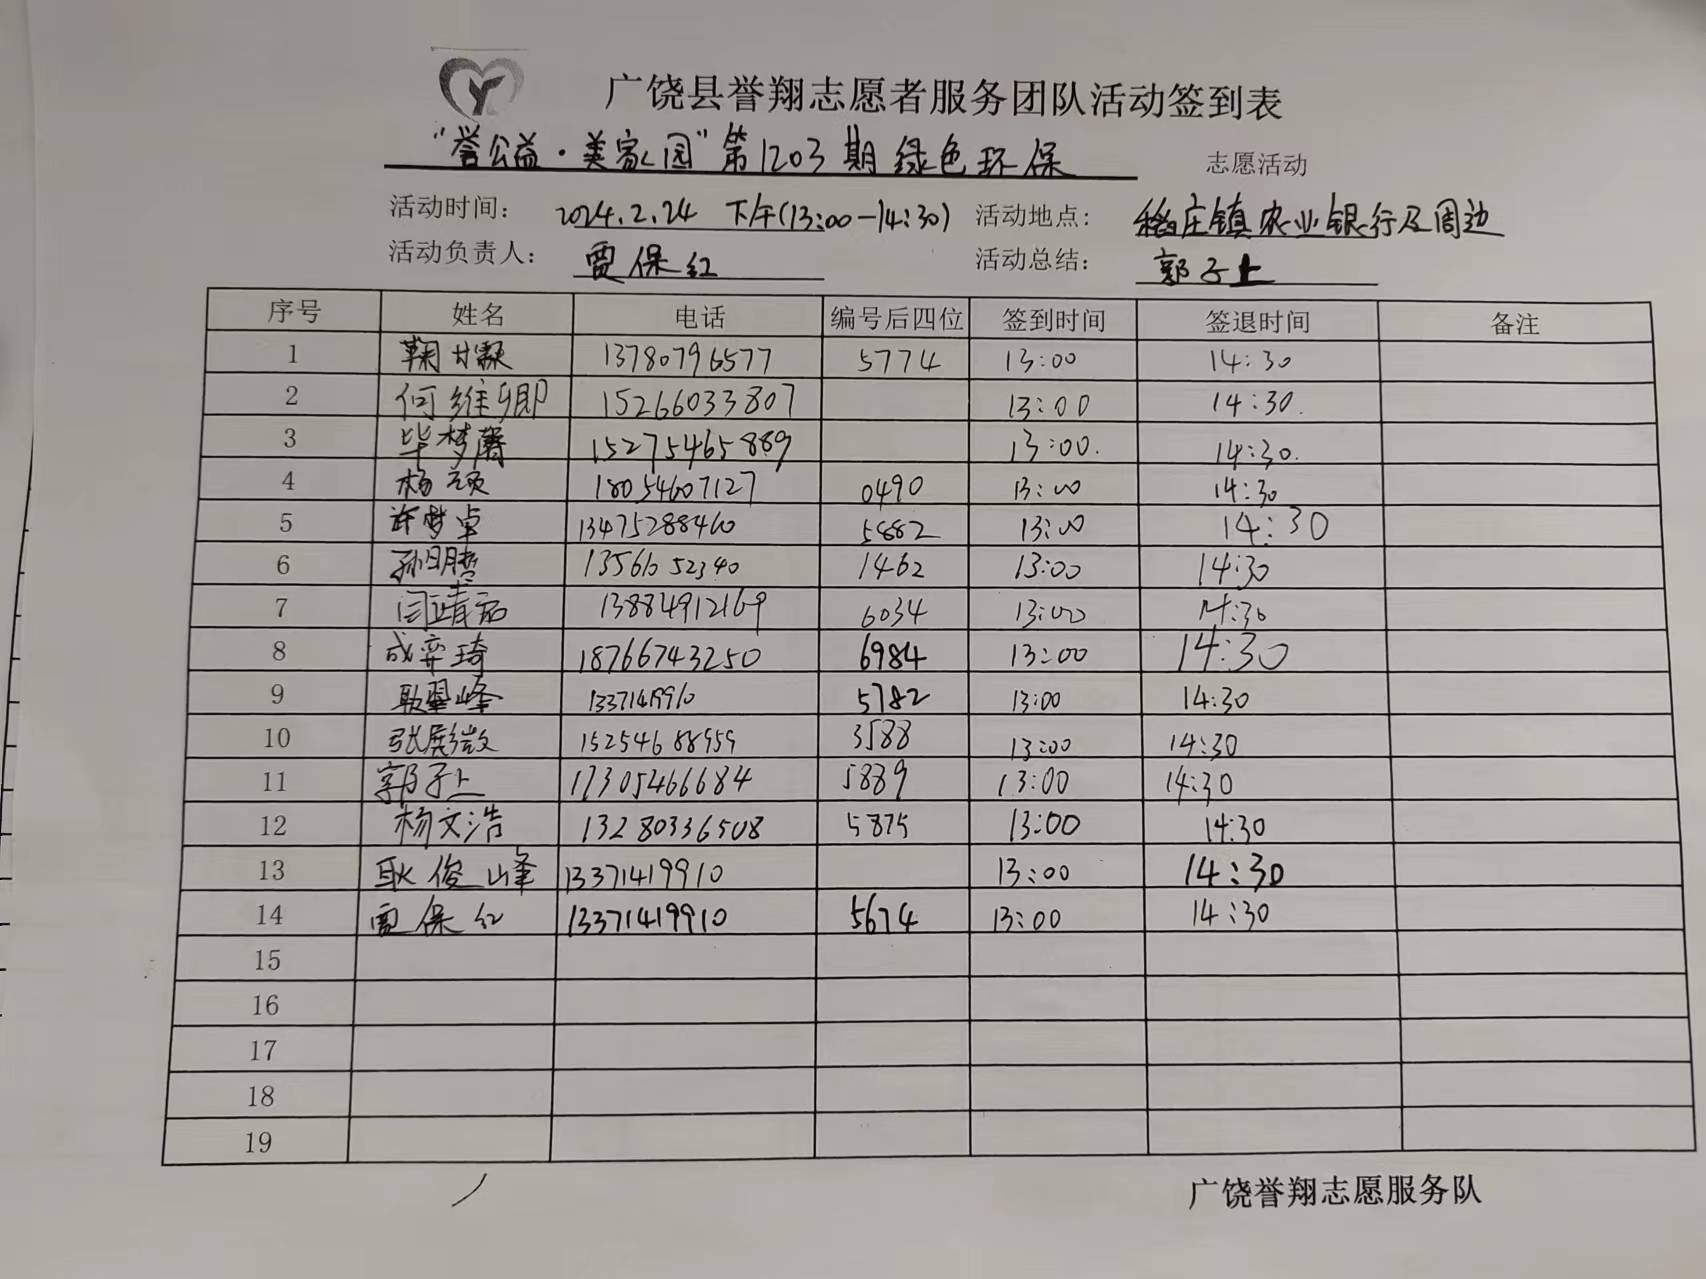 广饶县誉翔志愿者服务团队活动签到表
“誉公益·美家园”第1203期绿色环保 志愿活动
活动时间： 2024.2.24 下午(13:00-14:30) 活动地点： 稻庄镇农业银行及周边
活动负责人： 贾保红 活动总结： 郭子上
序号 姓名 电话 编号后四位 签到时间 签退时间 备注
1 鞠甘霖 13780796577 5774 13:00 14:30
2 何维卿 15266033807 13:00 14:30.
3 毕梦馨 15275465889 13:00. 14:30.
4 杨硕 18054607127 0490 13:00 14:30
5 许梦卓 13475288460 5882 13:00 14:30
6 孙明腾 13561052340 1462 13:00 14:30
7 闫靖 13884912169 6034 13:00 14:30
8 成弈琦 18766743250 6984 13:00 14:30
9 耿翌峰 13371419910 5782 13:00 14:30
10 张展微 15254688959 3588 13:00 14:30
11 郭子上 17305466684 5889 13:00 14:30
12 杨文浩 13280336508 5875 13:00 14:30
13 耿俊峰 13371419910 13:00 14:30
14 贾保红 13371419910 5674 13:00 14:30
15
16
17
18
19
广饶誉翔志愿服务队